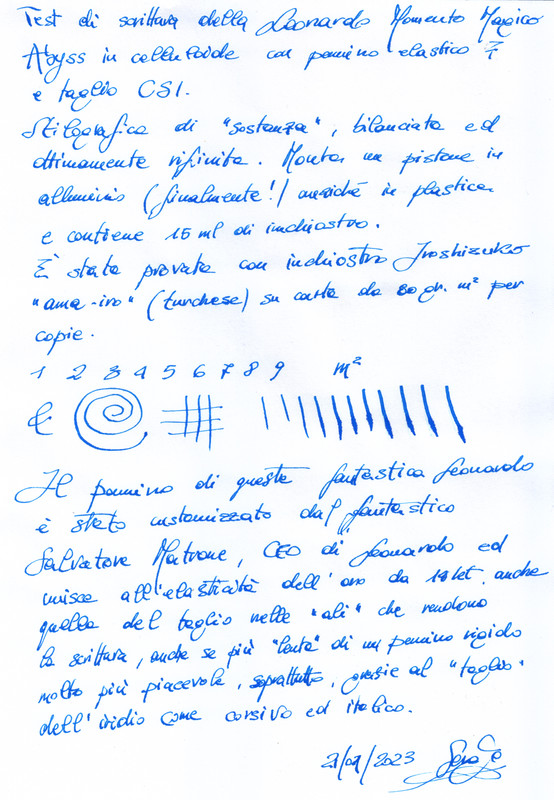 Test di scrittura della Leonardo Momento Magico
Abyss in celluloide con pennino elastico F
e taglio CSI.
Stilografica di "sostanza", bilanciata ed
ottimamente rifinita. Monta un pistone in
alluminio (finalmente!) anziché in plastica
e contiene 15 ml di inchiostro.
È stata provata con inchiostro Iroshizuko
"ama-iro" (turchese) su carta da 80 gr. m² per
copie.
1 2 3 4 5 6 7 8 9 m²
&
Il pennino di questa fantastica Leonardo
è stato customizzato dal fantastico
Salvatore Matrone, CEO di Leonardo ed
unisce all'elasticità dell'oro da 18 kt. anche
quella del taglio nelle "ali" che rendono
la scrittura, anche se più "lenta" di un pennino rigido
molto più piacevole, soprattutto, grazie al "taglio"
dell'iridio come corsivo ed italico.